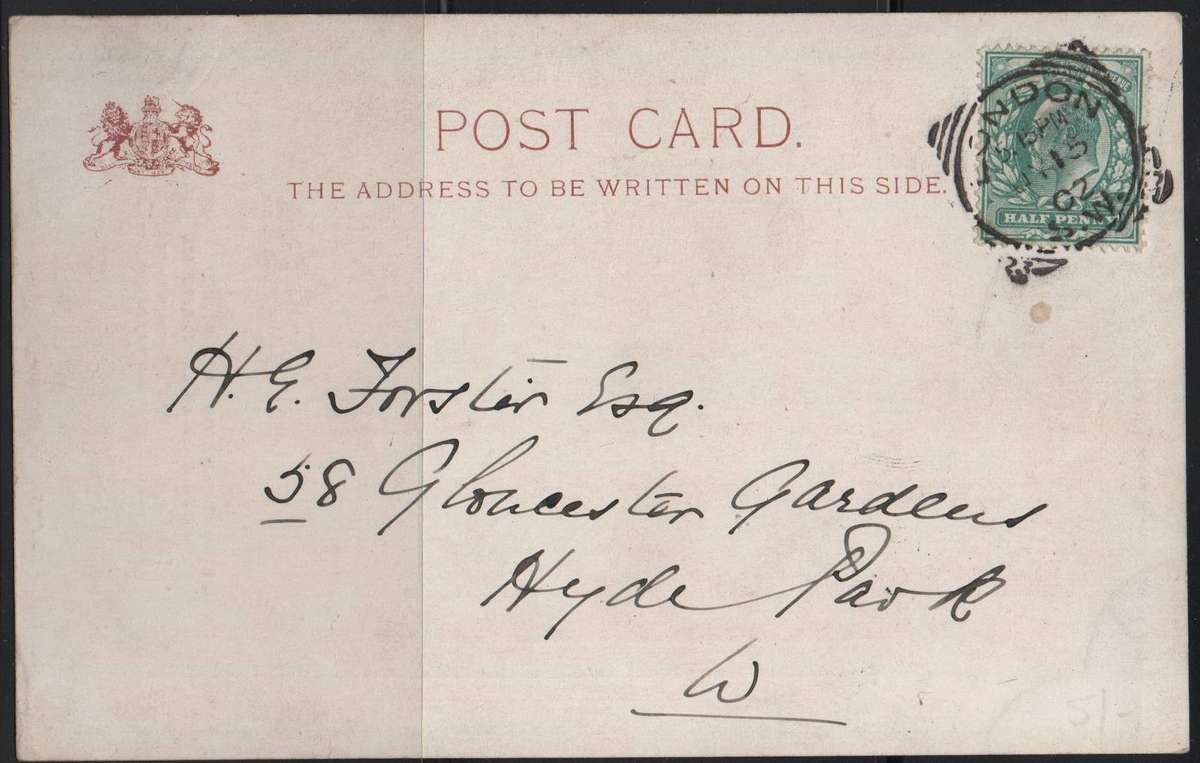 POST CARD.
THE ADDRESS TO BE WRITTEN ON THIS SIDE.
LONDON
PM
15
02
S.W.
HALF PENNY
H. E. Forster Esq.
58 Gloucester Gardens
Hyde Park
W
5/-